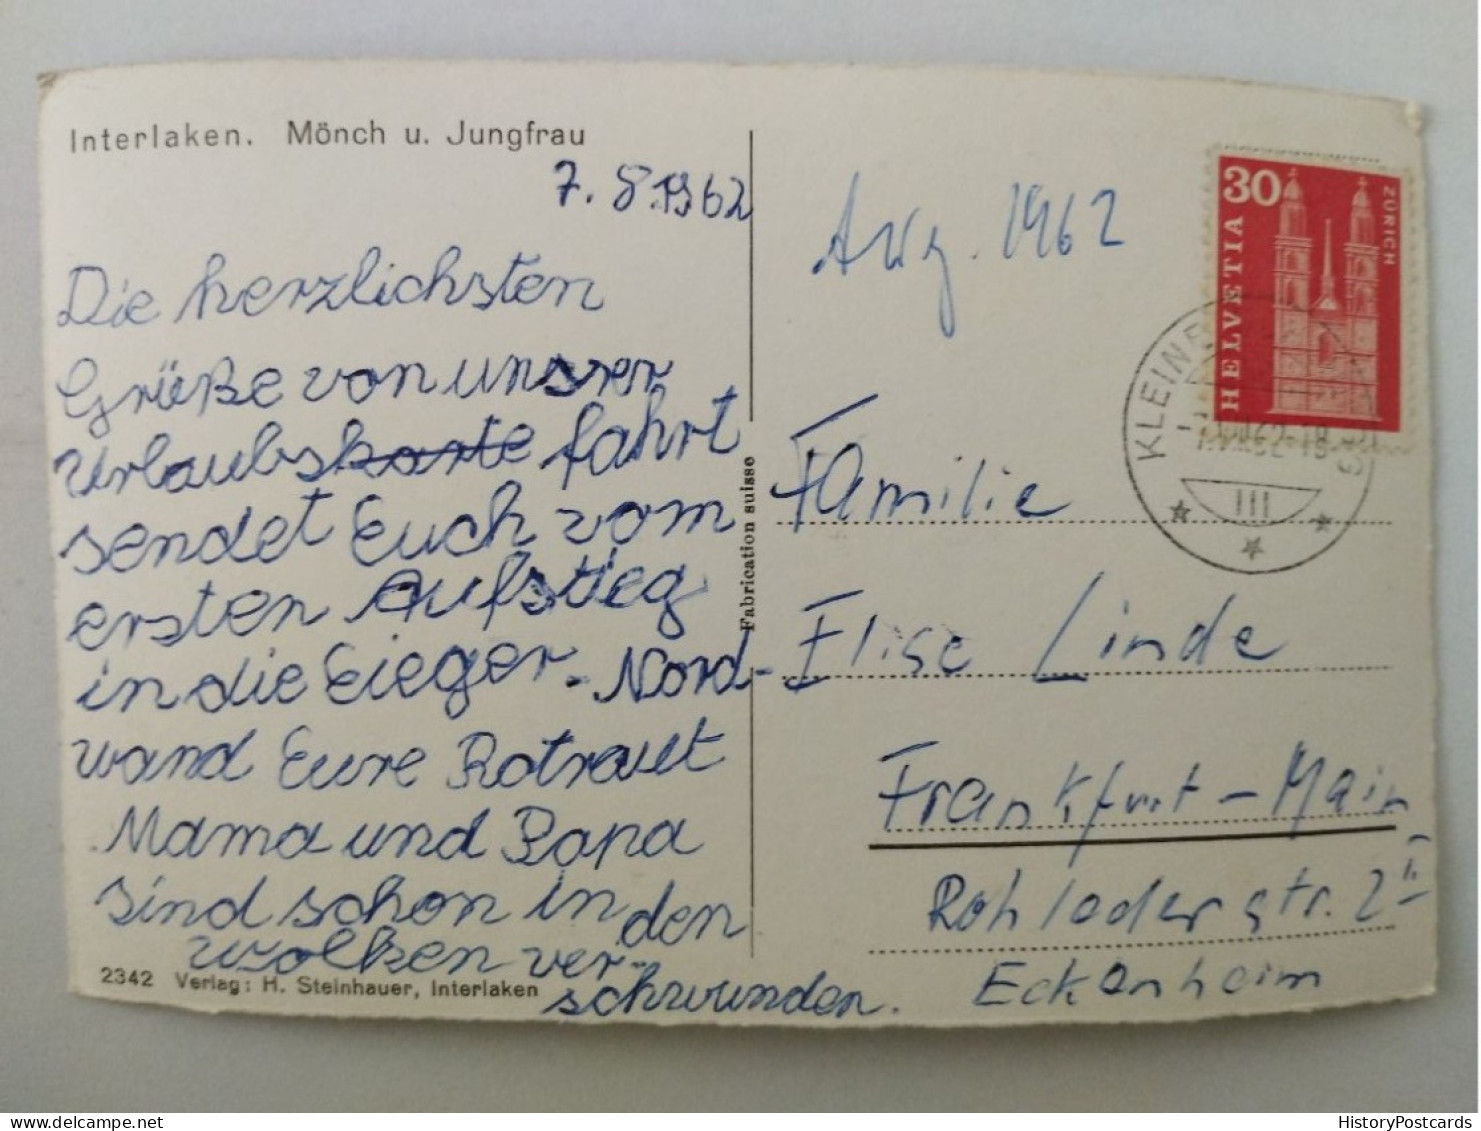 Interlaken. Mönch u. Jungfrau
7. 8. 1962
Die herzlichsten
Grüße von unsrer
Urlaubskarte fahrt
sendet Euch vom
ersten Aufstieg
in die Eieger-Nord-
wand Eure Rotraut
Mama und Papa
sind schon in den
Wolken ver-
schwunden.
2342 Verlag: H. Steinhauer, Interlaken
Fabrication suisse
Aug. 1962
30
ZÜRICH
HELVETIA
III
Familie
Elise Linde
Frankfurt-Main
Rohlederstr. 2 II
Eckenheim
HistoryPostcards